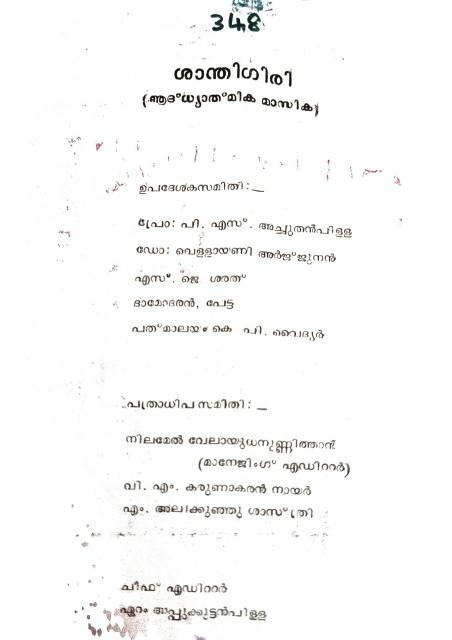 348
ശാന്തിഗിരി
(ആദ്ധ്യാത്മിക മാസിക)
ഉപദേശകസമിതി:—
പ്രോ: പി. എസ്. അച്ചുതൻപിള്ള
ഡോ: വെള്ളായണി അർജ്ജുനൻ
എസ്. ജെ ശരത്
ദാമോദരൻ, പേട്ട
പത്മാലയം കെ പി. വൈദ്യർ
പത്രാധിപസമിതി:—
നിലമേൽ വേലായുധനുണ്ണിത്താൻ
(മാനേജിംഗ് എഡിററർ)
വി. എം. കരുണാകരൻ നായർ
എം. അലിക്കുഞ്ഞു ശാസ്ത്രി
ചീഫ് എഡിററർ
ഏറം അപ്പുക്കുട്ടൻപിള്ള